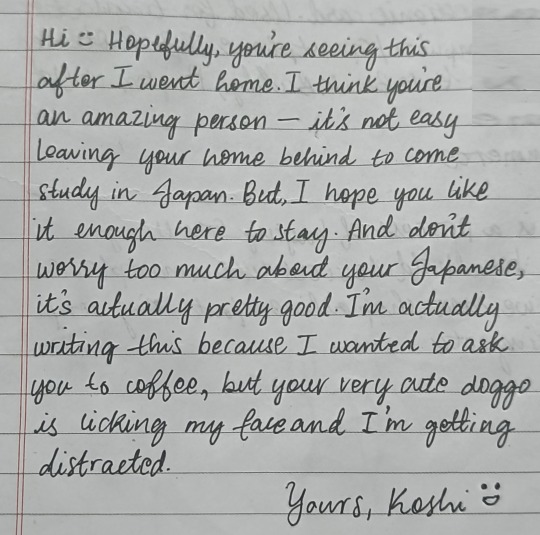 Hi :) Hopefully, you're seeing this
after I went home. I think you're
an amazing person – it's not easy
leaving your home behind to come
study in Japan. But, I hope you like
it enough here to stay. And don't
worry too much about your Japanese,
it's actually pretty good. I'm actually
writing this because I wanted to ask
you to coffee, but your very cute doggo
is licking my face and I'm getting
distracted.
Yours, Koshi :)